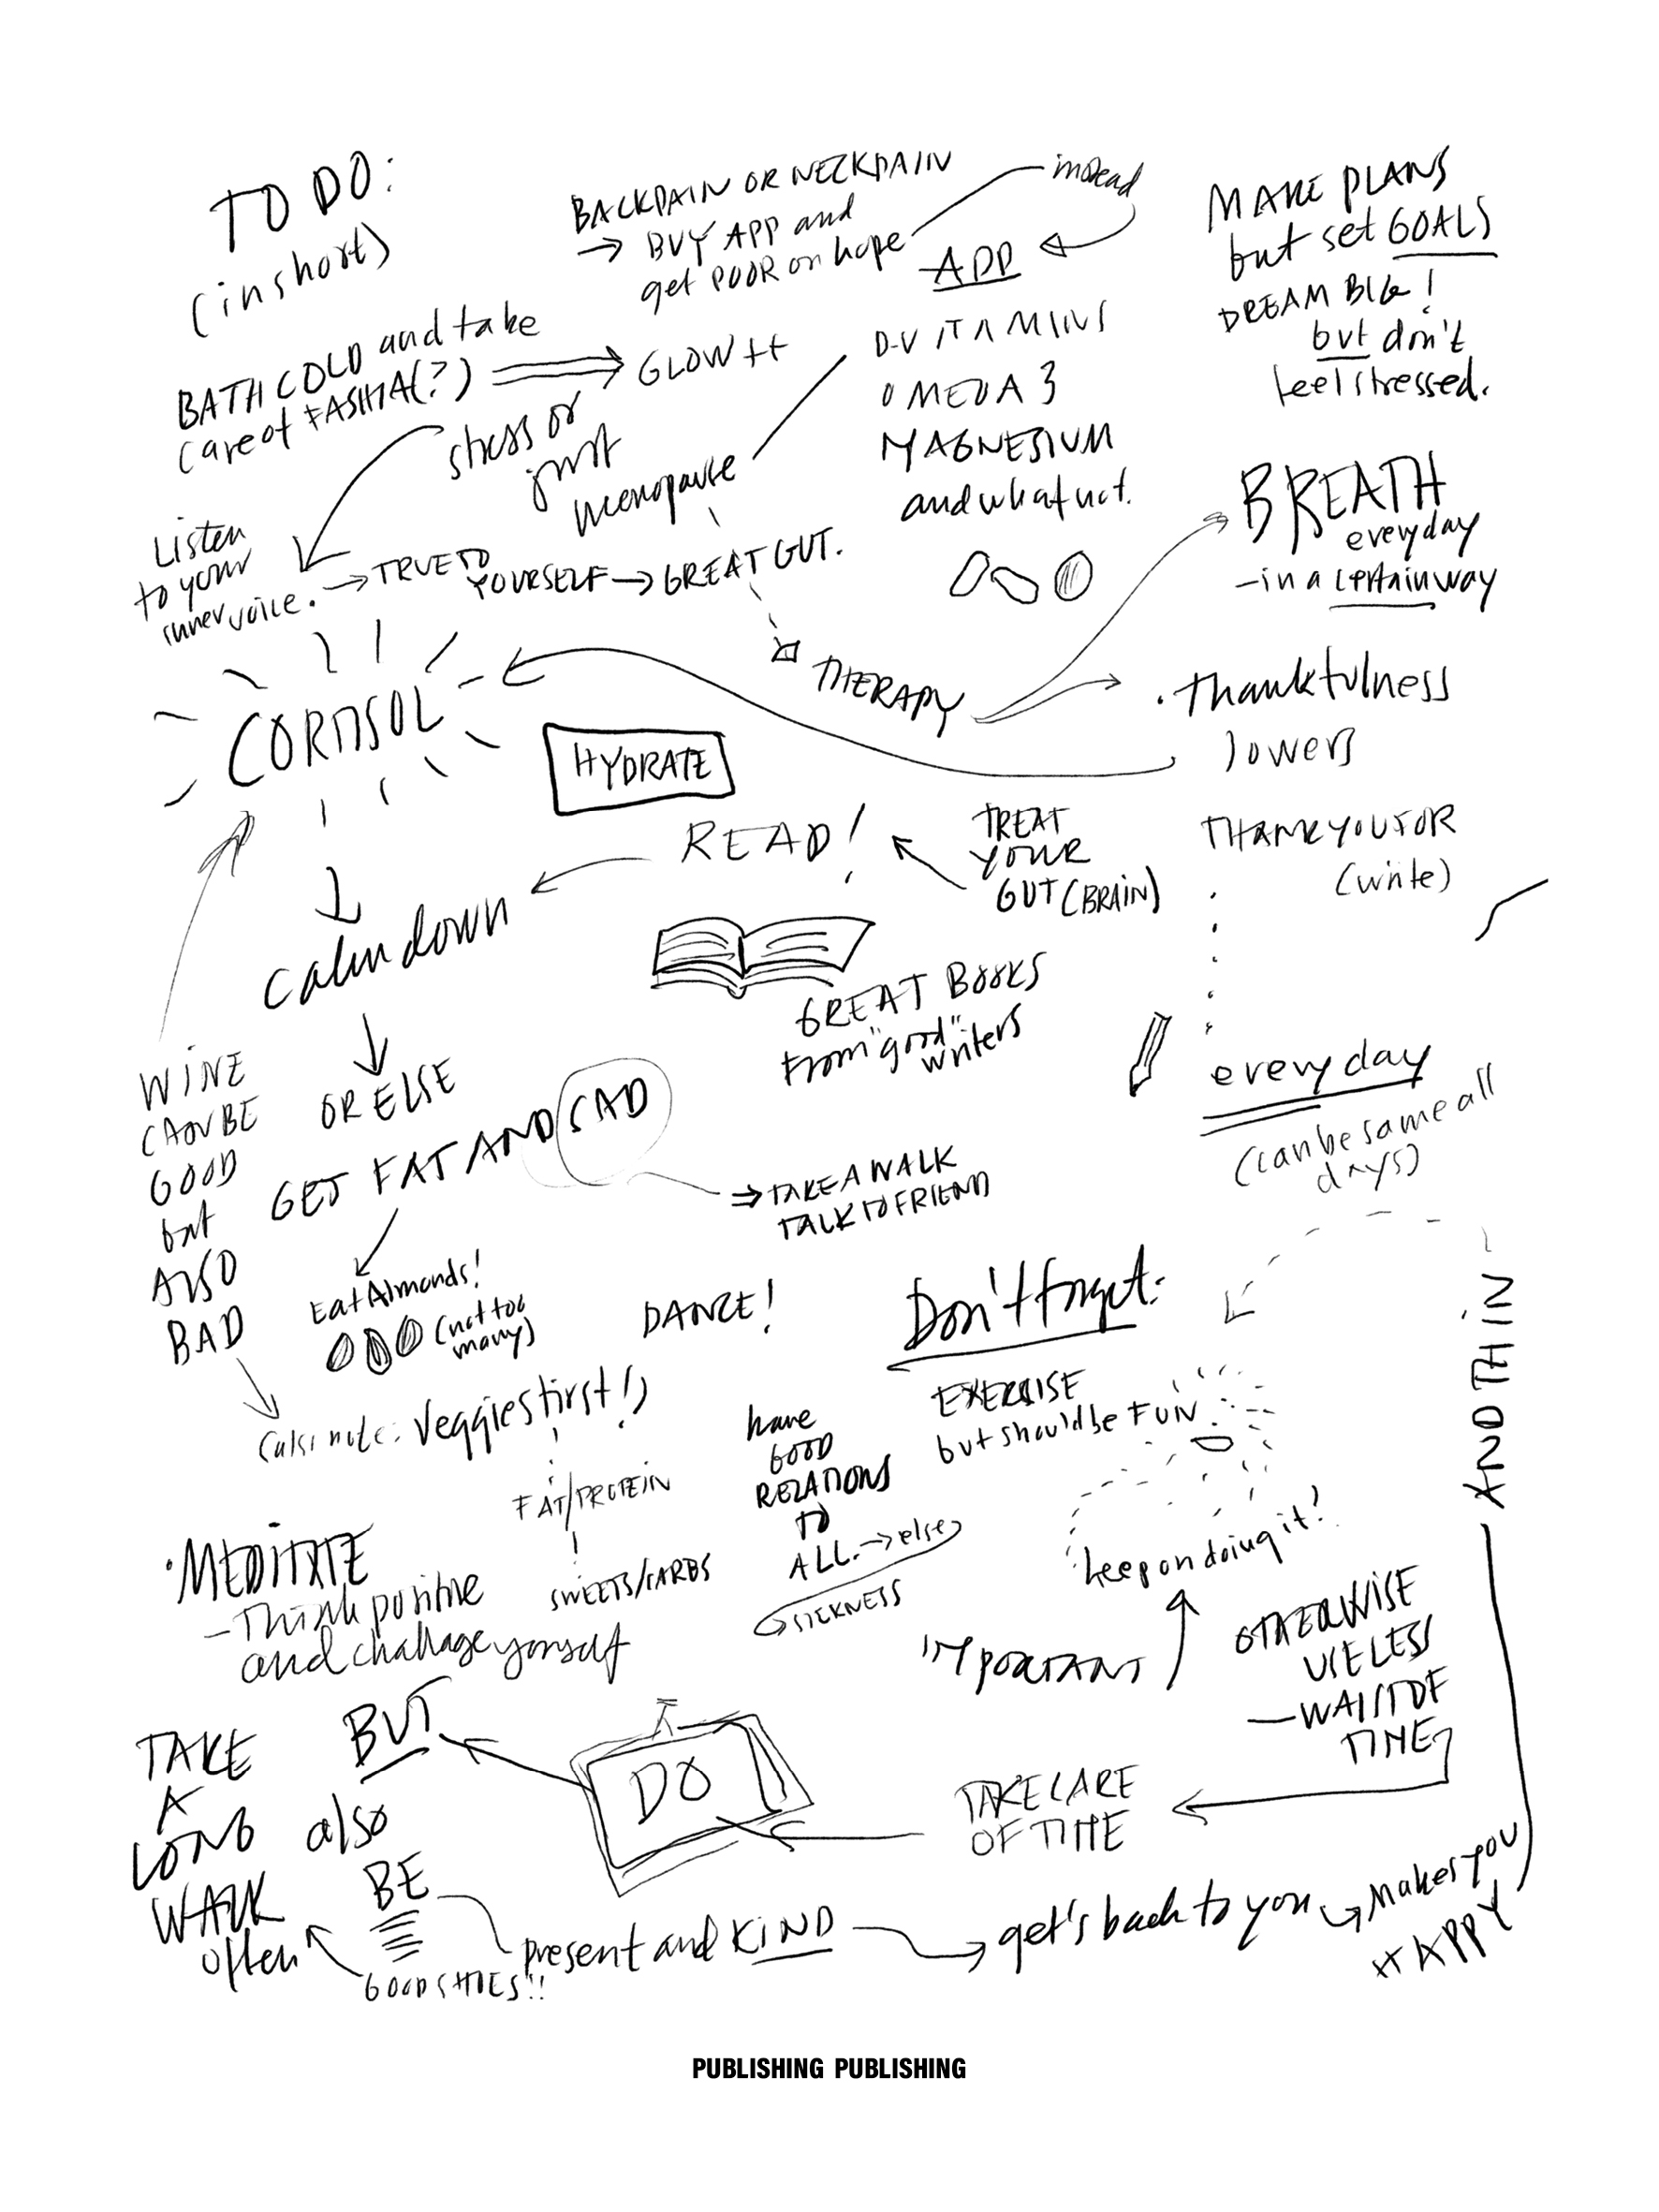 TO DO:
(in short)
BATH COLD and take
care of FASHIA(?)
GLOW ++
BACKPAIN OR NECKPAIN
→ BUY APP and
get POOR on hope
instead
APP
D-VITAMINS
OMEGA 3
MAGNESIUM
and what not.
MAKE PLANS
but set GOALS
DREAM BIG!
but don't
feel stressed.
stress or
just
menopause
Listen
to your
inner voice.
→ TRUE TO
YOURSELF → GREAT GUT.
THERAPY
BREATH
everyday
– in a certain way
• Thankfulness
lowers
CORTISOL
HYDRATE
READ!
TREAT
YOUR
GUT (BRAIN)
THANK YOU FOR
(write)
everyday
(can be same all
days)
calm down
GREAT BOOKS
from "good"
writers
OR ELSE
GET FAT AND SAD
⇒ TAKE A WALK
TALK TO FRIEND
WINE
CAN BE
GOOD
but
ALSO
BAD
Eat Almonds!
(not too
many)
DANCE!
(also note: Veggies first!)
FAT/PROTEIN
SWEETS/CARBS
have
GOOD
RELATIONS
TO
ALL. → else
SICKNESS
Don't forget:
EXERCISE
but should be FUN
keep on doing it!
IMPORTANT
OTHERWISE
USELESS
– WAIST OF
TIME
TAKE CARE
OF TIME
AND THIN
• MEDITATE
– Think positive
and challage yorself
DO
BUT
also
BE
TAKE
A
LONG
WALK
often
GOOD SHOES!!
present and KIND
get's back to you
Makes you
HAPPY
PUBLISHING PUBLISHING